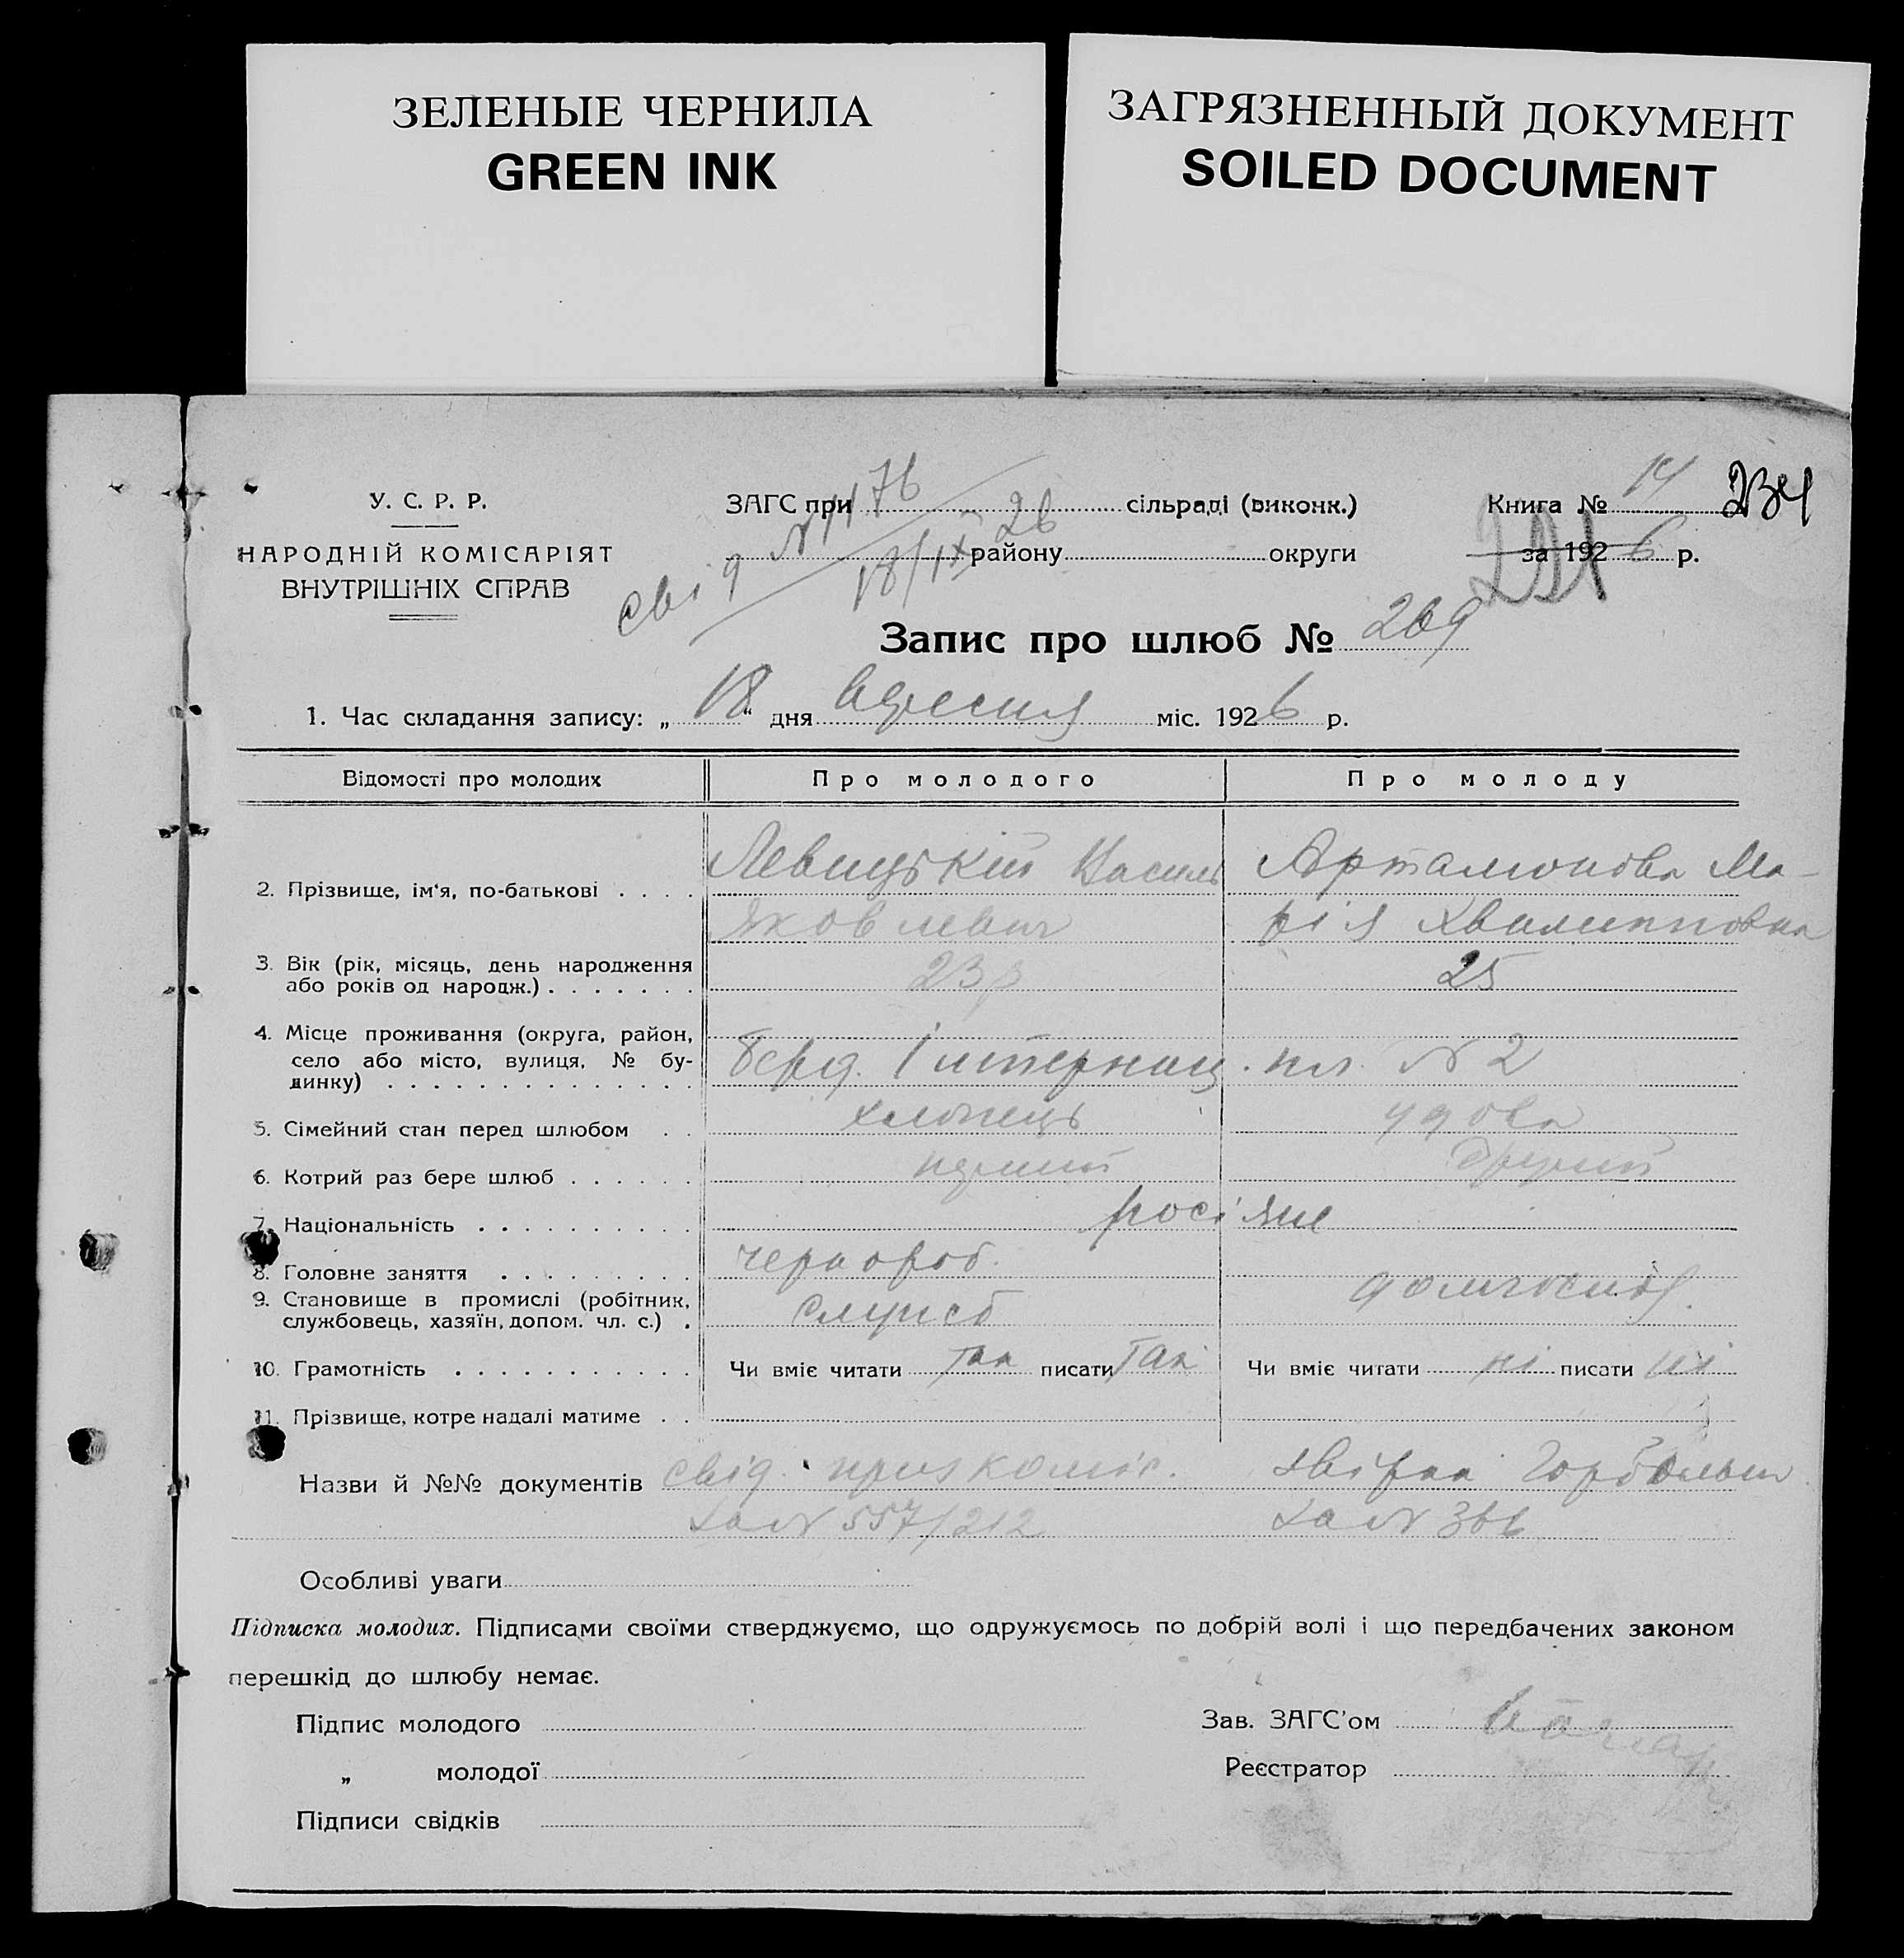 ЗЕЛЕНЫЕ ЧЕРНИЛА
GREEN INK
ЗАГРЯЗНЕННЫЙ ДОКУМЕНТ
SOILED DOCUMENT
У. С. Р. Р.
НАРОДНІЙ КОМІСАРІЯТ
ВНУТРІШНІХ СПРАВ
свід N 1176
18/IX 26
ЗАГС при сільраді (виконк.)
району округи
Книга № 14 234
за 1926 р.
221
Запис про шлюб № 269
1. Час складання запису: „18“ дня вересня міс. 1926 р.
Відомості про молодих Про молодого Про молоду
2. Прізвище, ім'я, по-батькові Левицькій Василь Артамонова Ма-
Яковлевич рія Хвилипповна
3. Вік (рік, місяць, день народження
або років од народж.) 23р 25
4. Місце проживання (округа, район,
село або місто, вулиця, № бу-
динку) Берд. Інтернац. пл. N 2
5. Сімейний стан перед шлюбом хлопець удова
6. Котрий раз бере шлюб перший другий
7. Національність росіяне
8. Головне заняття чернороб.
9. Становище в промислі (робітник,
службовець, хазяїн, допом. чл. с.) служб домгоспод.
10. Грамотність Чи вміє читати так писати так Чи вміє читати ні писати ні
11. Прізвище, котре надалі матиме
Назви й №№ документів свід. призкоміс.
за N 557/212 за N 366
Особливі уваги
Підписка молодих. Підписами своїми стверджуємо, що одружуємось по добрій волі і що передбачених законом
перешкід до шлюбу немає.
Підпис молодого Зав. ЗАГС'ом
„ молодої Реєстратор
Підписи свідків